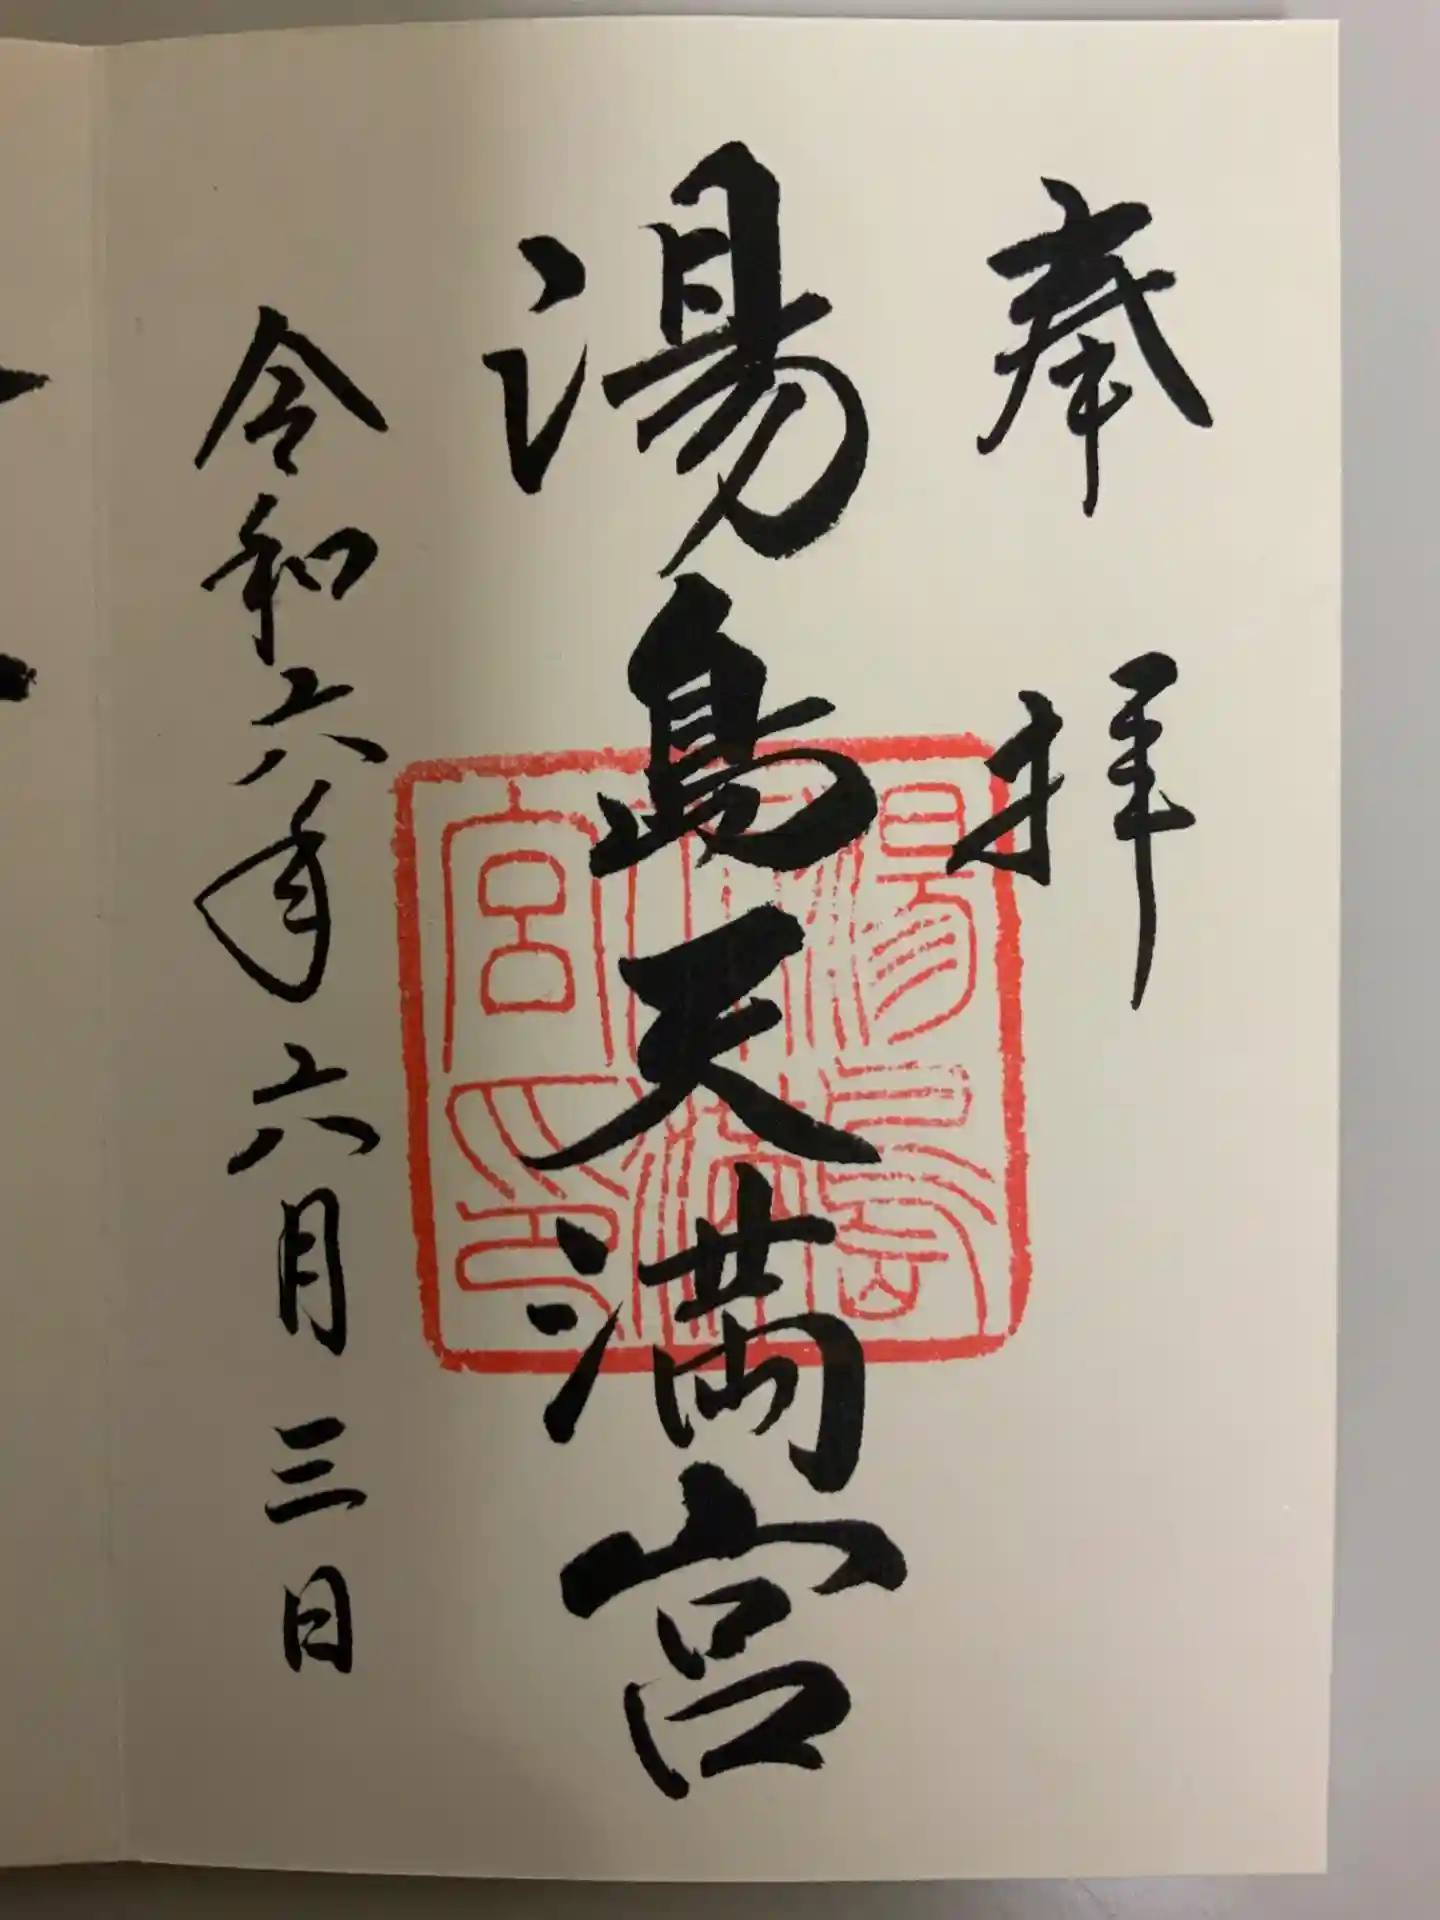 奉拝
湯島天満宮
湯島
天満
宮印
令和六年六月三日